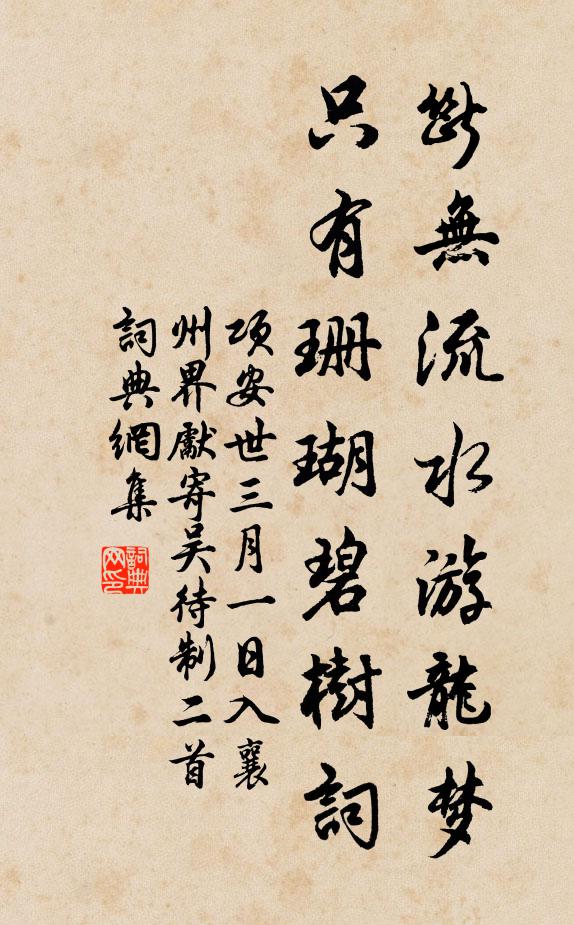 斷無流水游龍梦
只有珊瑚碧樹詞
項安世三月一日入襄
州界獻寄吴待制二首
詞典網集
詞典
网印